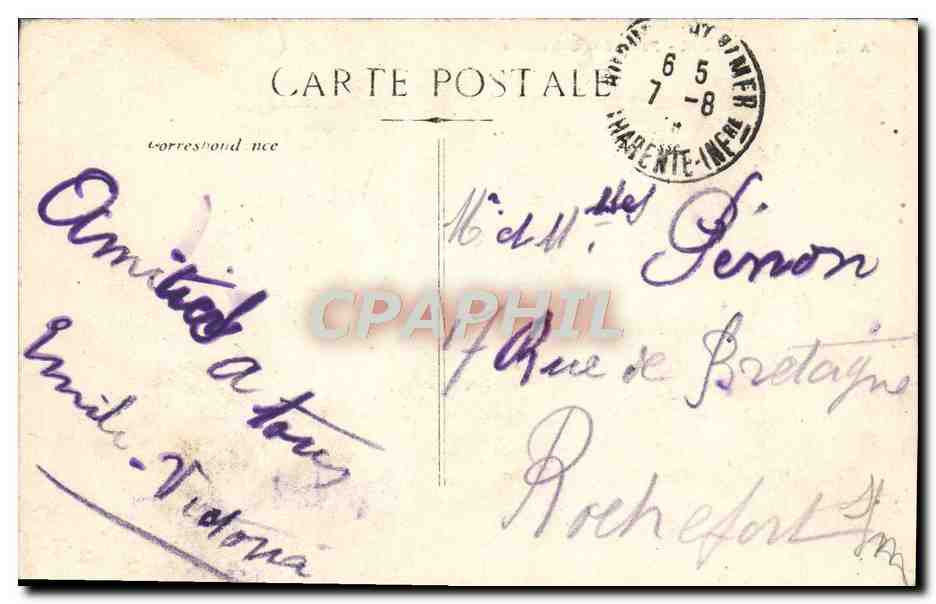 CARTE POSTALE
Correspondance
6 5
7 -8
CHARENTE-INFRE
Amitiés
a tous
Emile - Victoria
Mr et Melles Pénon
17 Rue de Bretagne
Rochefort s/m
CPAPHIL